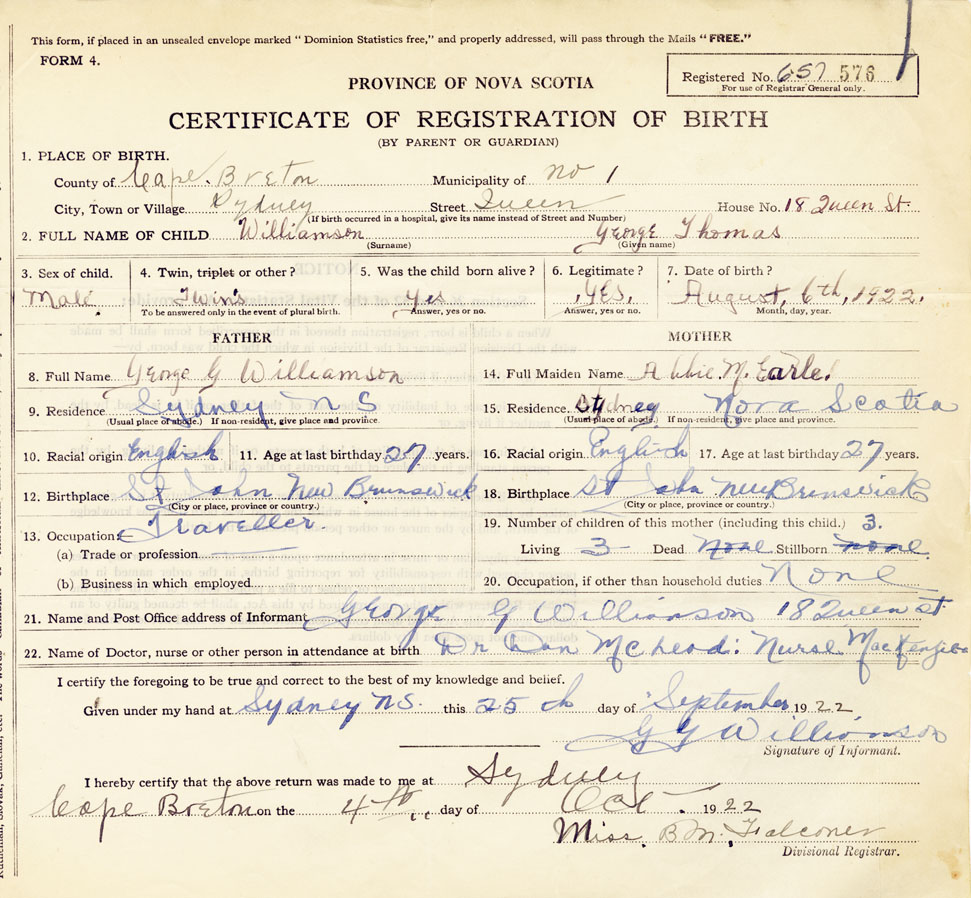 This form, if placed in an unsealed envelope marked "Dominion Statistics free," and properly addressed, will pass through the Mails "FREE."
FORM 4.
Registered No. 657 576
For use of Registrar General only.
PROVINCE OF NOVA SCOTIA
CERTIFICATE OF REGISTRATION OF BIRTH
(BY PARENT OR GUARDIAN)
1. PLACE OF BIRTH.
County of Cape. Breton Municipality of No 1
City, Town or Village Sydney Street Queen House No. 18 Queen St
(If birth occurred in a hospital, give its name instead of Street and Number)
2. FULL NAME OF CHILD Williamson George Thomas
(Surname) (Given name)
3. Sex of child. 4. Twin, triplet or other? 5. Was the child born alive? 6. Legitimate? 7. Date of birth?
Male Twins Yes YES. August, 6th, 1922.
To be answered only in the event of plural birth. Answer, yes or no. Answer, yes or no. Month, day, year.
FATHER MOTHER
8. Full Name George G Williamson 14. Full Maiden Name Abbie. M. Earle.
9. Residence Sydney N S 15. Residence. Sydney Nova Scotia
(Usual place of abode.) If non-resident, give place and province. (Usual place of abode.) If non-resident, give place and province.
10. Racial origin English 11. Age at last birthday 27 years. 16. Racial origin English 17. Age at last birthday 27 years.
12. Birthplace St John New Brunswick 18. Birthplace St John New Brunswick
(City or place, province or country.) (City or place, province or country.)
13. Occupation: Traveller 19. Number of children of this mother (including this child.) 3.
(a) Trade or profession Living 3 Dead None Stillborn none
(b) Business in which employed 20. Occupation, if other than household duties None
21. Name and Post Office address of Informant George G Willianson 18 Queen st
22. Name of Doctor, nurse or other person in attendance at birth Dr Dan McLeod: Nurse MacKenzie
I certify the foregoing to be true and correct to the best of my knowledge and belief.
Given under my hand at Sydney N.S. this 25 th day of September 1922
G G Willianson
Signature of Informant.
I hereby certify that the above return was made to me at Sydney
Cape Breton on the 4th day of Oct. 1922
Miss. B. M. Falconer
Divisional Registrar.